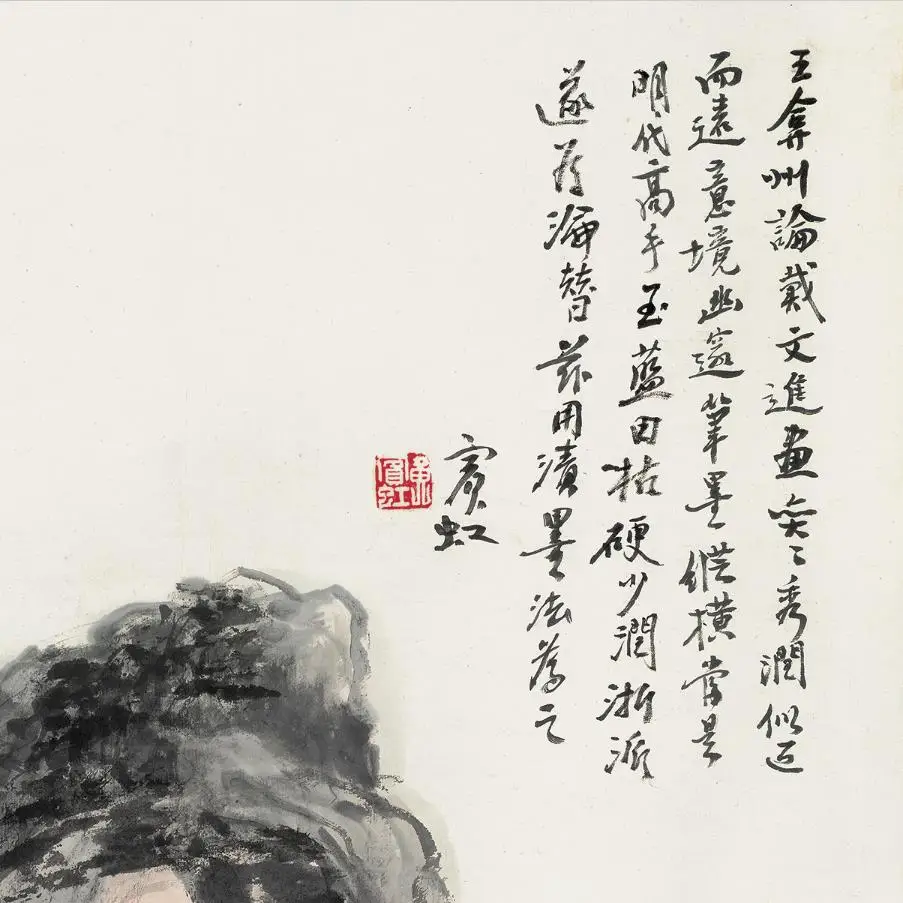 王弇州論戴文進畫奕〻秀潤似近
而遠意境幽邃筆墨縱橫當是
明代高手至藍田枯硬少潤浙派
遂為淪替茲用漬墨法為之
賓虹
黃賓虹